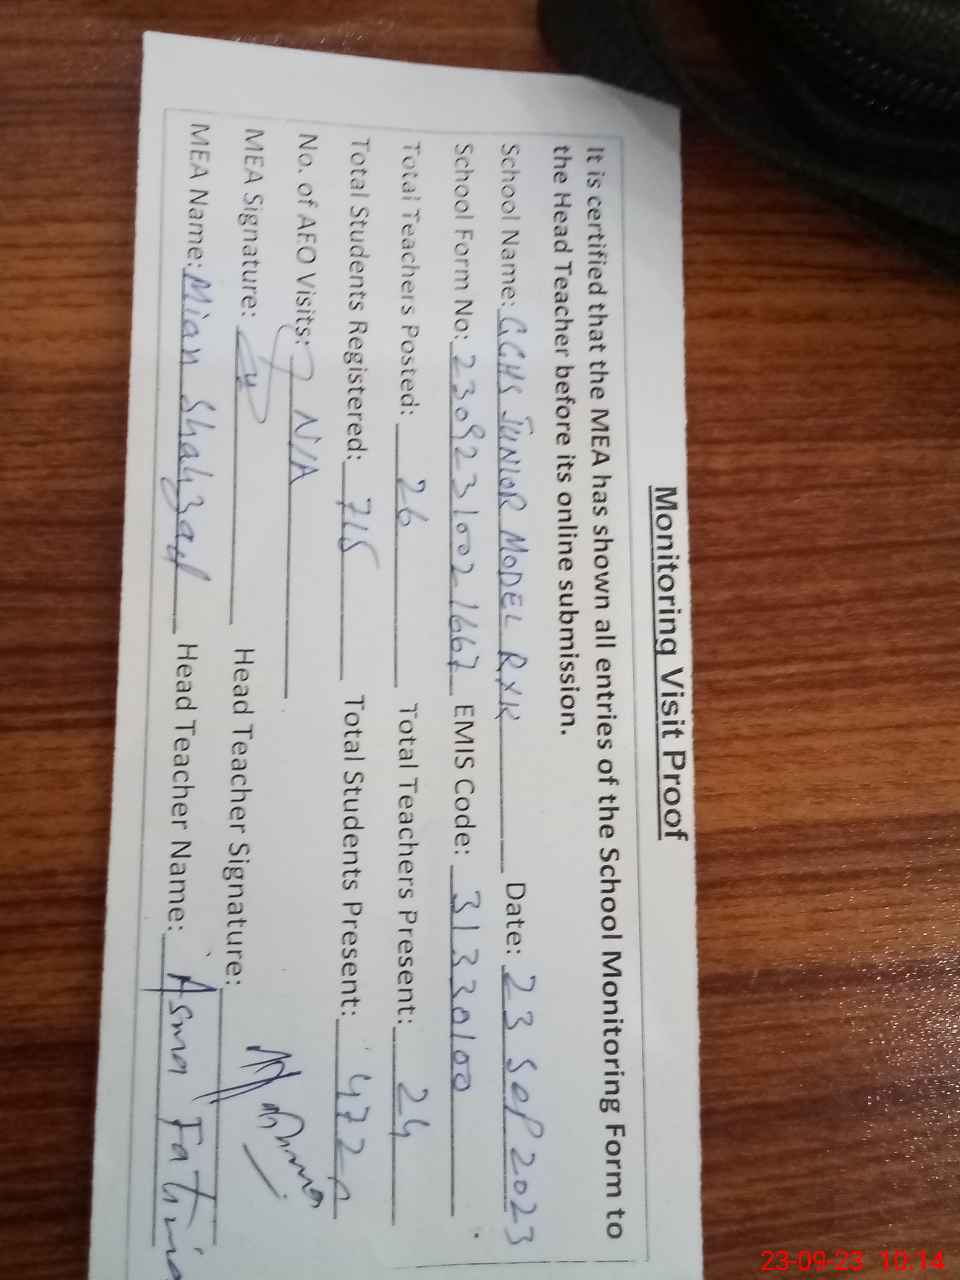 Monitoring Visit Proof
It is certified that the MEA has shown all entries of the School Monitoring Form to
the Head Teacher before its online submission.
School Name: GGHS JUNIOR MODEL RYK Date: 23 Sep 2023
School Form No: 23092310021667 EMIS Code: 31330100
Total Teachers Posted: 26 Total Teachers Present: 24
Total Students Registered: 715 Total Students Present: 472
No. of AEO Visits: N/A
MEA Signature: Head Teacher Signature:
MEA Name: Mian Shahzad Head Teacher Name: Asma Fatima
23-09-23 10:14